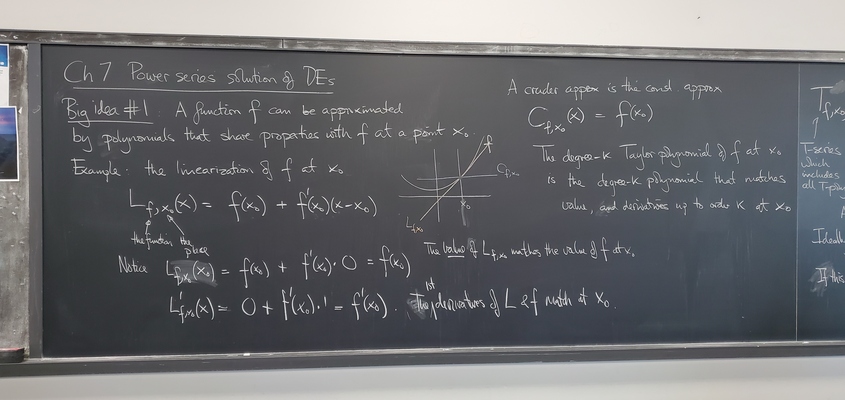 Ch 7 Power series solution of DEs
Big idea #1: A function f can be approximated
by polynomials that share properties with f at a point x₀.
Example: the linearization of f at x₀
L_{f,x₀}(x) = f(x₀) + f'(x₀)(x-x₀)
the function the place
Notice L_{f,x₀}(x₀) = f(x₀) + f'(x₀)·0 = f(x₀) The value of L_{f,x₀} matches the value of f at x₀
L'_{f,x₀}(x) = 0 + f'(x₀)·1 = f'(x₀). The 1st derivatives of L & f match at x₀.
f
C_{f,x₀}
x₀
L_{f,x₀}
A cruder approx is the const. approx
C_{f,x₀}(x) = f(x₀)
The degree-k Taylor polynomial of f at x₀
is the degree-k polynomial that matches
value, and derivatives up to order k at x₀
T_{f,x₀}
T-series
which
includes
all T-
If this